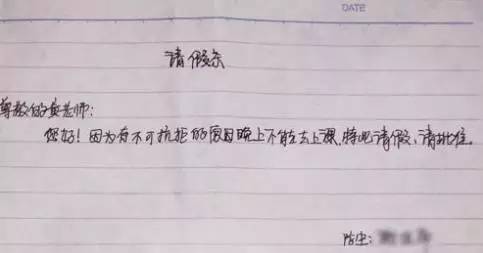 DATE
请假条
尊敬的吴老师：
您好！因为有不可抗拒的原因晚上不能去上课，特此请假，请批准。